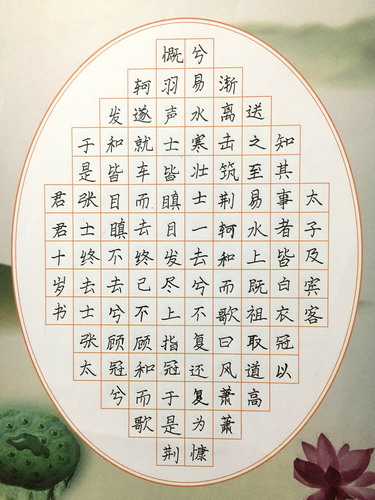 太子及宾客
知其事者皆白衣冠以
送之至易水上既祖取道高
渐离击筑荆轲和而歌曰风萧萧
兮易水寒壮士一去兮不复还复为慷
慨羽声士皆瞋目发尽上指冠于是荆
轲遂就车而去终已不顾和而歌
发和皆目瞋不去兮顾冠兮
于是张士终去士张太
君君十岁书